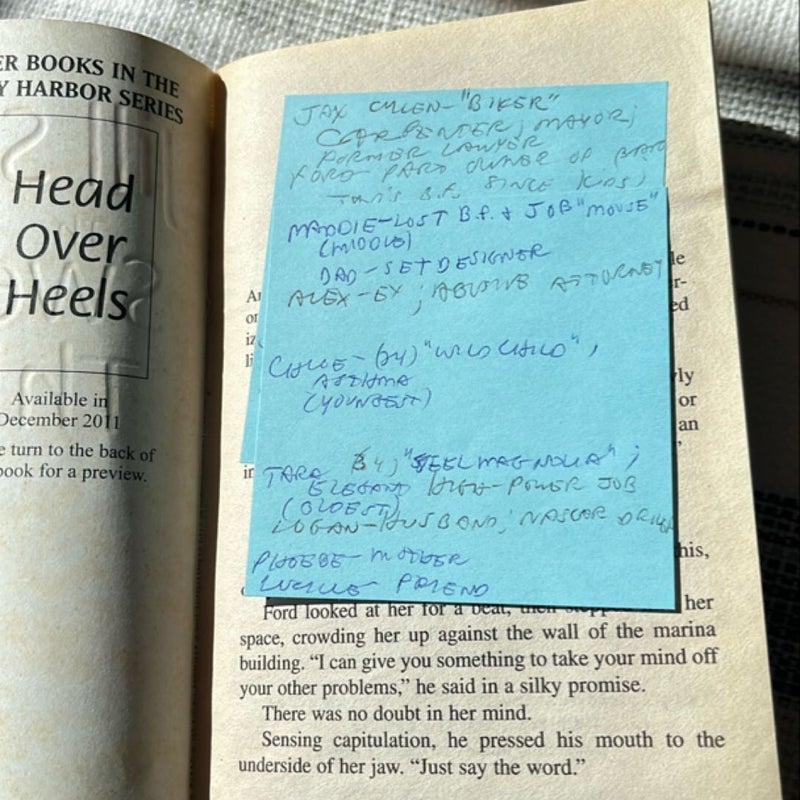 ER BOOKS IN THE
Y HARBOR SERIES
Head
Over
Heels
Available in
December 2011
e turn to the back of
book for a preview.
JAX CULLEN - "BIKER"
CARPENTER; MAYOR;
FORMER LAWYER
FORD PART OWNER OF
TARA'S B.F. SINCE KIDS)
MADDIE - LOST B.F. + JOB "MOUSE"
(MIDDLE)
DAD - SET DESIGNER
ALEX - EX; ABUSIVE ATTORNEY
CHLOE - (24) "WILD CHILD",
ASTHMA
(YOUNGEST)
TARA 34, "STEEL MAGNOLIA";
ELEGANT HIGH-POWER JOB
(OLDEST)
LOGAN - HUSBAND; NASCAR DRIVER
PHOEBE - MOTHER
LUCILLE - FRIEND
le
r-
ed
vly
or
an
his,
Ford looked at her for a beat, then her
space, crowding her up against the wall of the marina
building. “I can give you something to take your mind off
your other problems,” he said in a silky promise.
There was no doubt in her mind.
Sensing capitulation, he pressed his mouth to the
underside of her jaw. “Just say the word.”